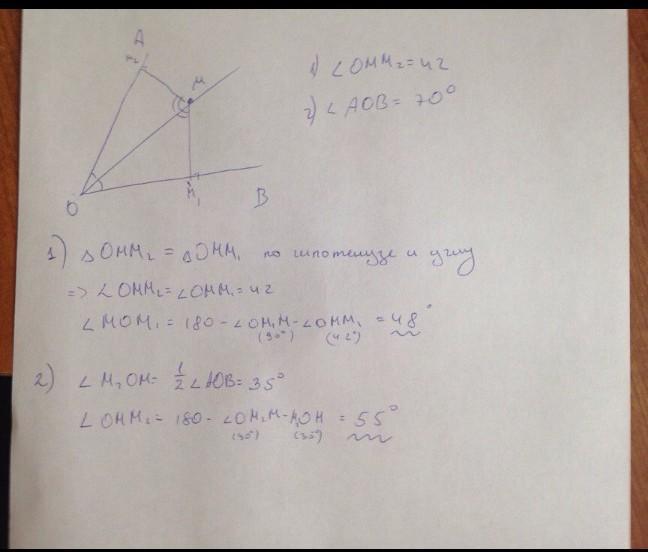 A
M₂
M
O
M₁
B
1) ∠OMM₂=42
2) ∠AOB= 70°
1) △OMM₂ = △OMM₁ по гипотенузе и углу
=> ∠OMM₂=∠OMM₁=42
∠MOM₁ = 180-∠OM₁M-∠OMM₁ =48°
(90°) (42°)
2) ∠M₂OM= 1/2 ∠AOB= 35°
∠OMM₂= 180- ∠OM₂M-M₂OM =55°
(90°) (35°)